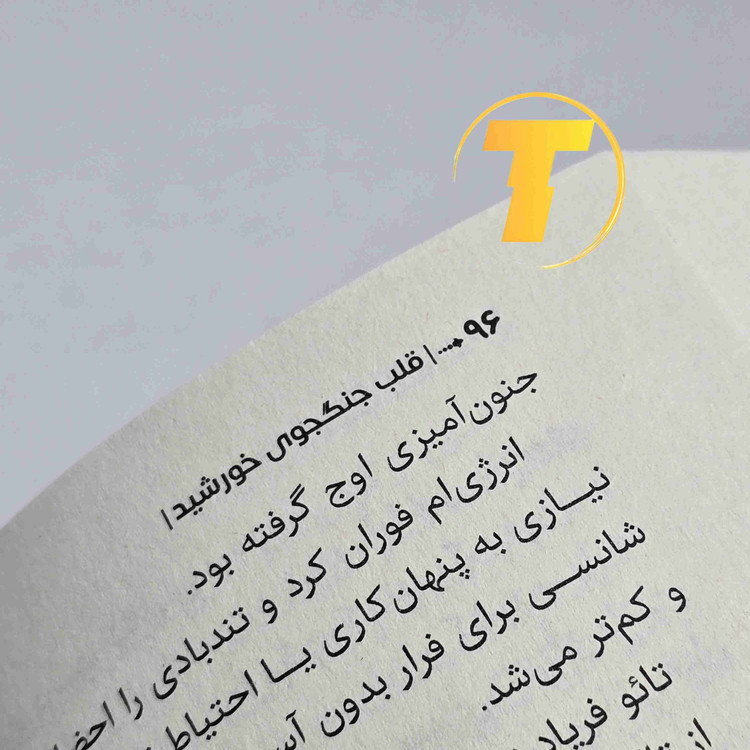 T
۹۶ | قلب جنگجوی خورشید |
جنون‌آمیزی اوج گرفته بود.
انرژی‌ام فوران کرد و تندبادی را
نیازی به پنهان‌کاری یا احتیاط
شانسی برای فرار بدون
و کم‌تر می‌شد.
تائو